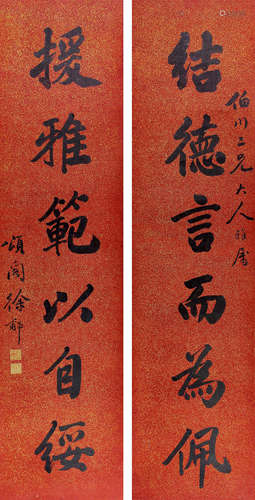 伯川三兄大人雅属
結德言而為佩
援雅範以自綏
頌閣徐郙